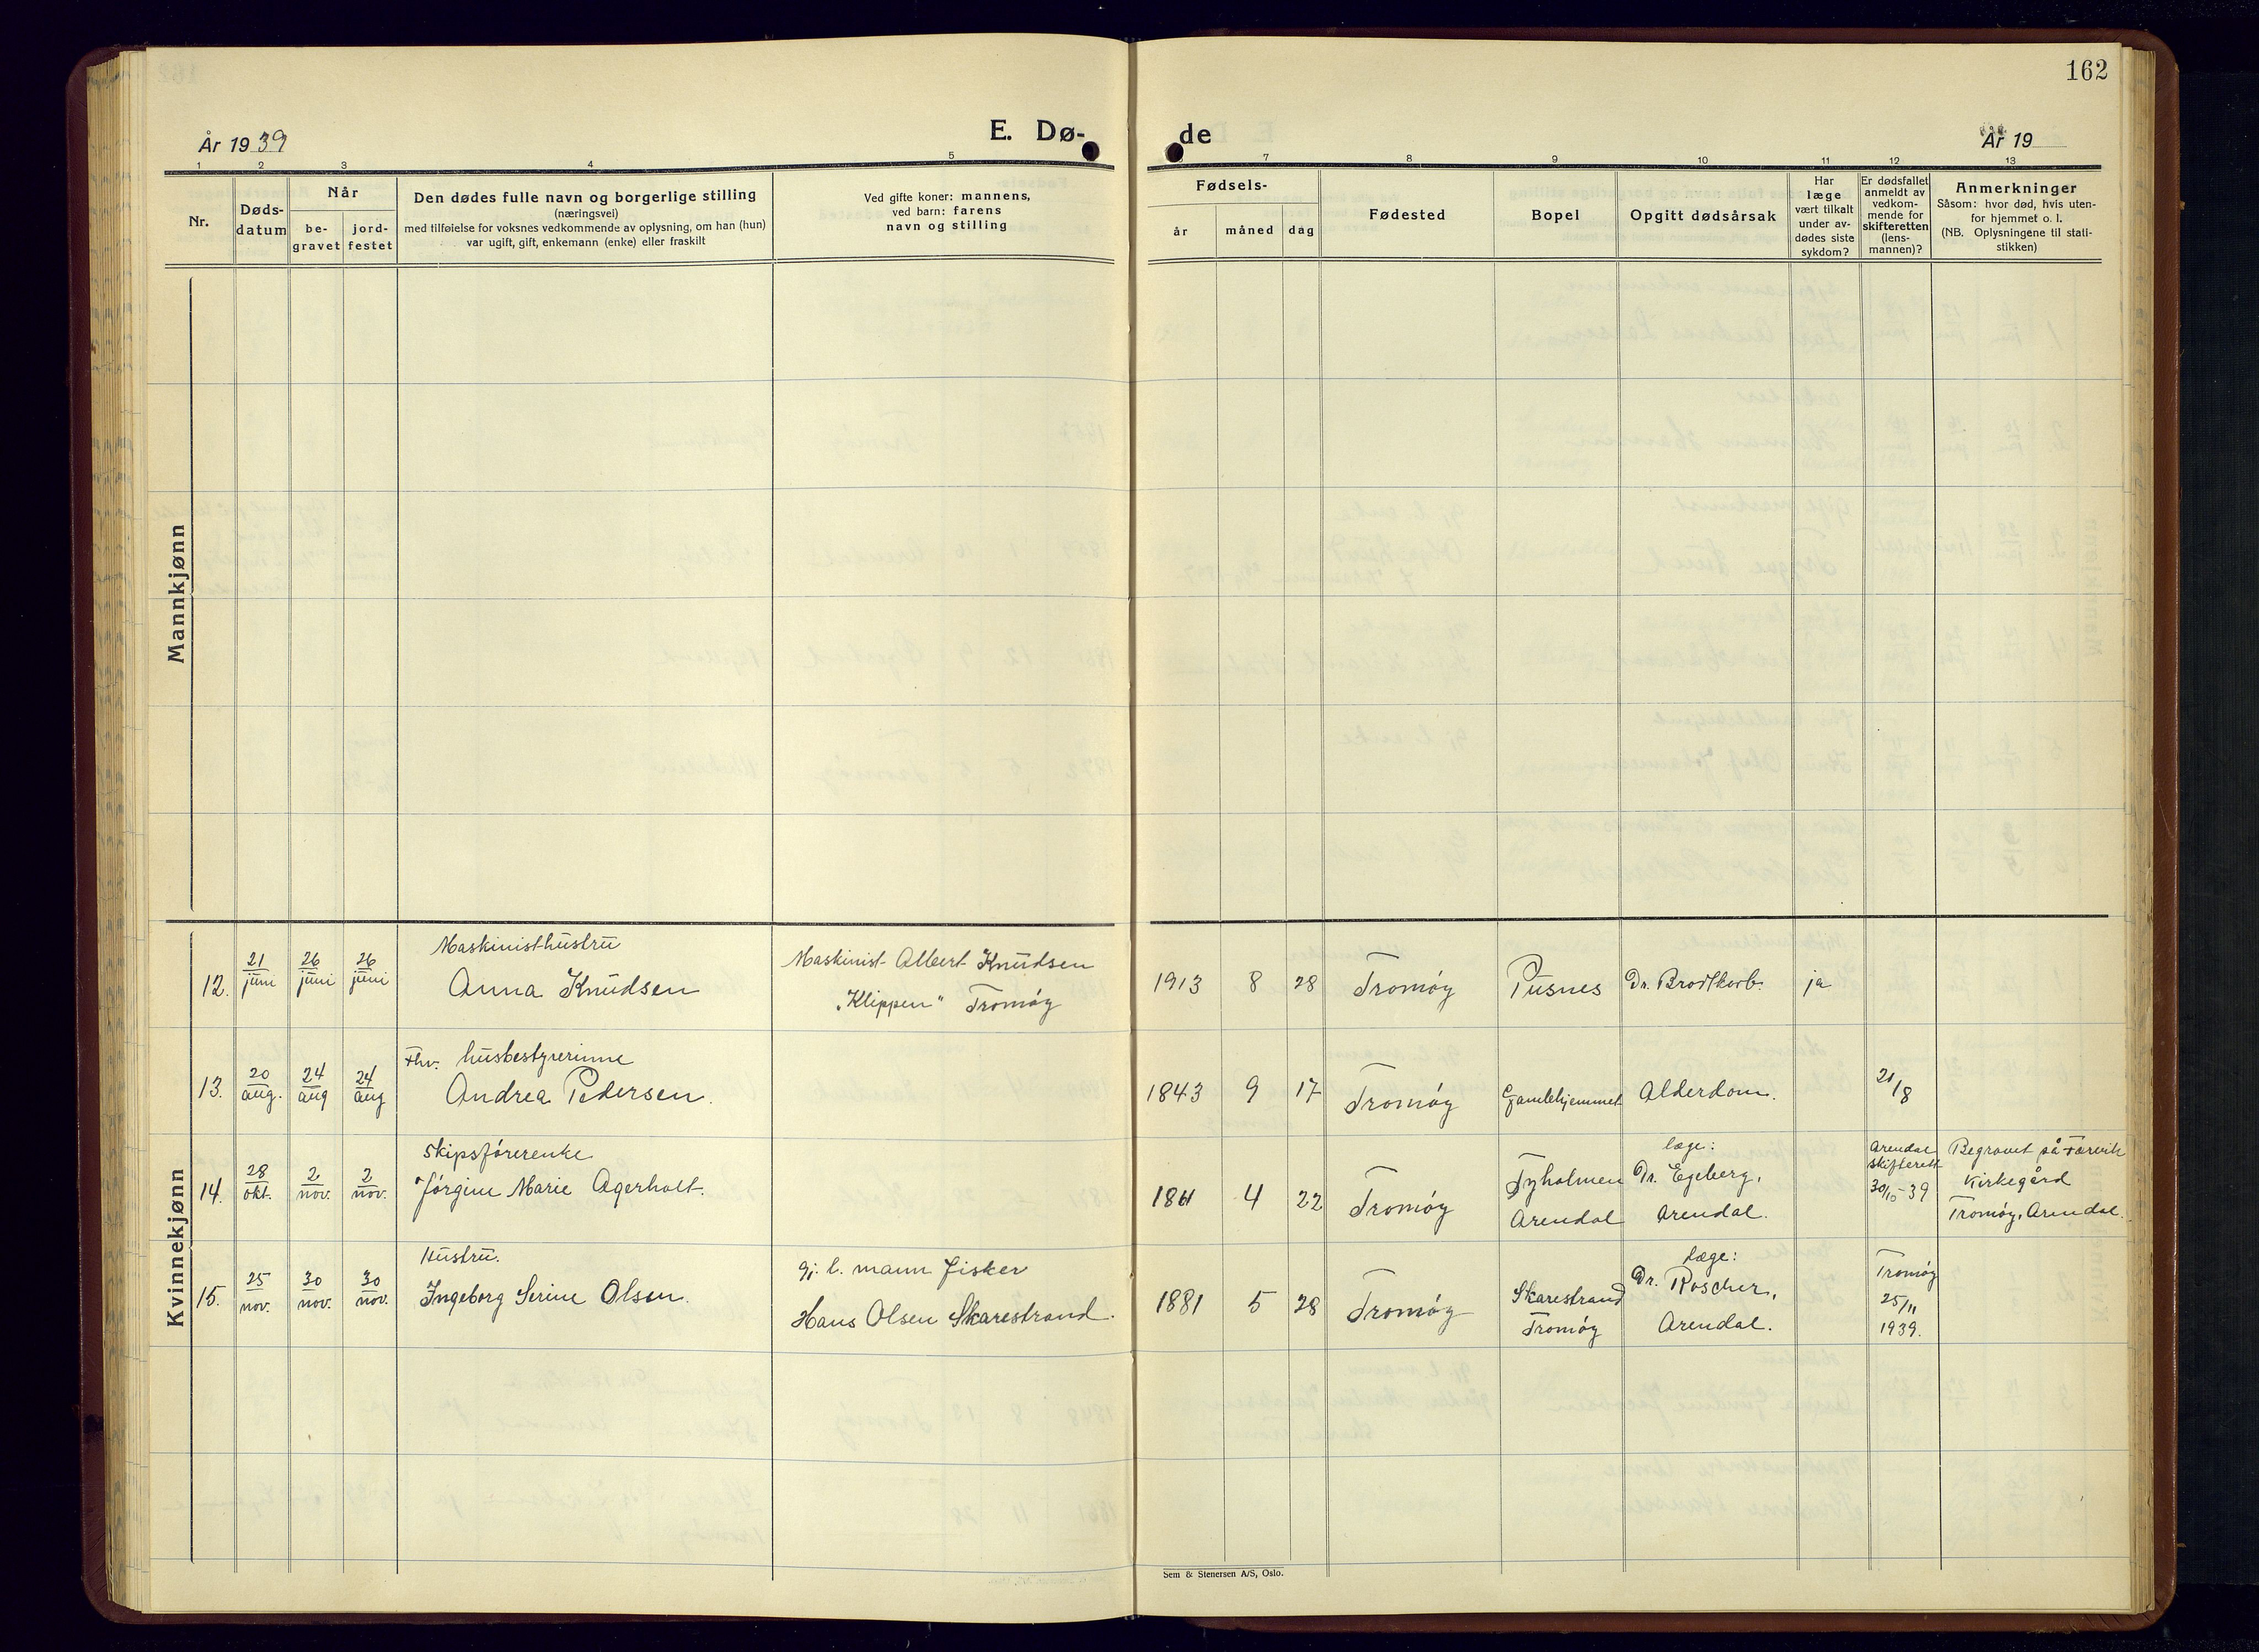 162
År 1939
E. Dø-
de
År 19
1 2 3 4 5
7 8 9 10 11 12 13
Nr.
Døds-
datum
Når
be-
gravet
jord-
festet
Den dødes fulle navn og borgerlige stilling
(næringsvei)
med tilføielse for voksnes vedkommende av oplysning, om han (hun)
var ugift, gift, enkemann (enke) eller fraskilt
Ved gifte koner: mannens,
ved barn: farens
navn og stilling
Fødsels-
år
måned
dag
Fødested
Bopel
Opgitt dødsårsak
Har
læge
vært tilkalt
under av-
dødes siste
sykdom?
Er dødsfallet
anmeldt av
vedkom-
mende for
skifteretten
(lens-
mannen)?
Anmerkninger
Såsom: hvor død, hvis uten-
for hjemmet o. l.
(NB. Oplysningene til stati-
stikken)
Mannkjønn
Kvinnekjønn
12. 21/juni 26/juni 26/juni
Maskinisthustru
Anna Knudsen
Maskinist Albert Knudsen
"Klippen" Tromøy
1913 8 28 Tromøy Pusnes Dr. Brodtkorb. ja
13. 20/aug. 24/aug 24/aug
Fhv. husbestyrerinne
Andrea Pedersen.
1843 9 17 Tromøy Gamlehjemmet Alderdom. 21/8
14. 28/okt. 2/nov. 2/nov.
Skipsførerenke
Jørgine Marie Agerholt.
1861 4 22 Tromøy
Tyholmen
Arendal
læge:
Dr. Egeberg,
Arendal.
Arendal
skifterett
30/10-39
Begravet på Færvik
kirkegård
Tromøy, Arendal.
15. 25/nov. 30/nov. 30/nov.
Hustru.
Ingeborg Serine Olsen.
gj. l. mann fisker
Hans Olsen Skarestrand.
1881 5 28 Tromøy
Skarestrand
Tromøy
læge:
Dr. Roscher,
Arendal.
Tromøy
25/11
1939.
Sem & Stenersen A/S, Oslo.